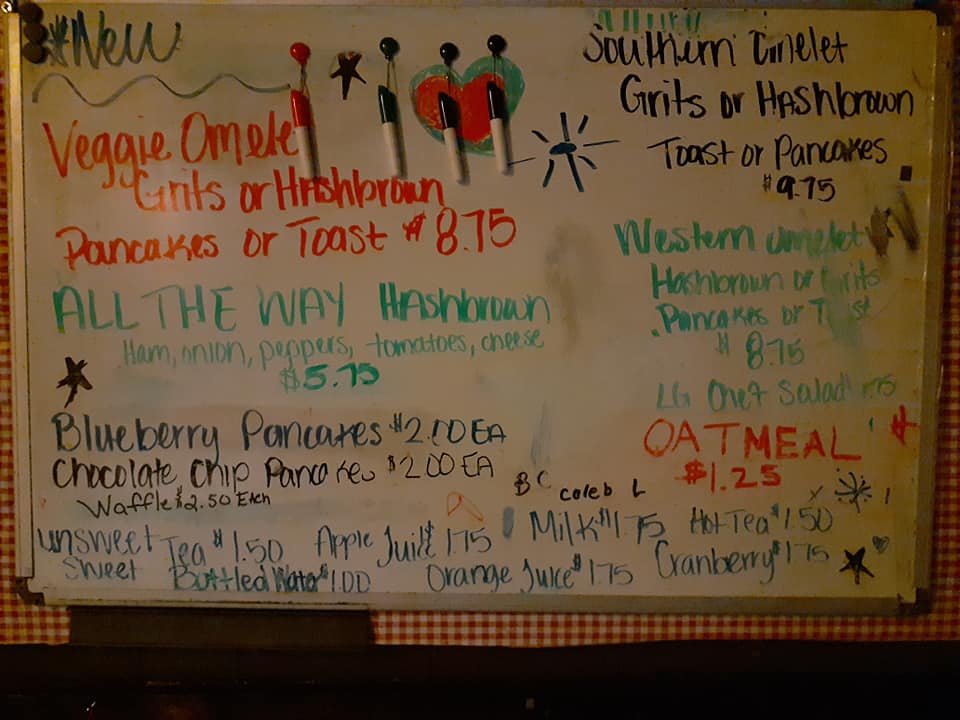 *New
Veggie Omele
Grits or Hashbrown
Pancakes or Toast $8.75
ALL THE WAY Hashbrown
Ham, onion, peppers, tomatoes, cheese
$5.75
Blueberry Pancakes $2.00 EA
Chocolate Chip Pancakes $2.00 EA
Waffle $2.50 Each
Southern Omelet
Grits or Hashbrown
Toast or Pancakes
$9.75
Western Omelet
Hashbrown or Grits
Pancakes or T st
$8.75
LG Chef Salad
OATMEAL
$1.25
BC Coleb L
unsweet Tea $1.50
Sweet
Bottled Water $1.00
Apple Juice $1.75
Orange Juice $1.75
Milk $1.75
Hot Tea $1.50
Cranberry $1.75